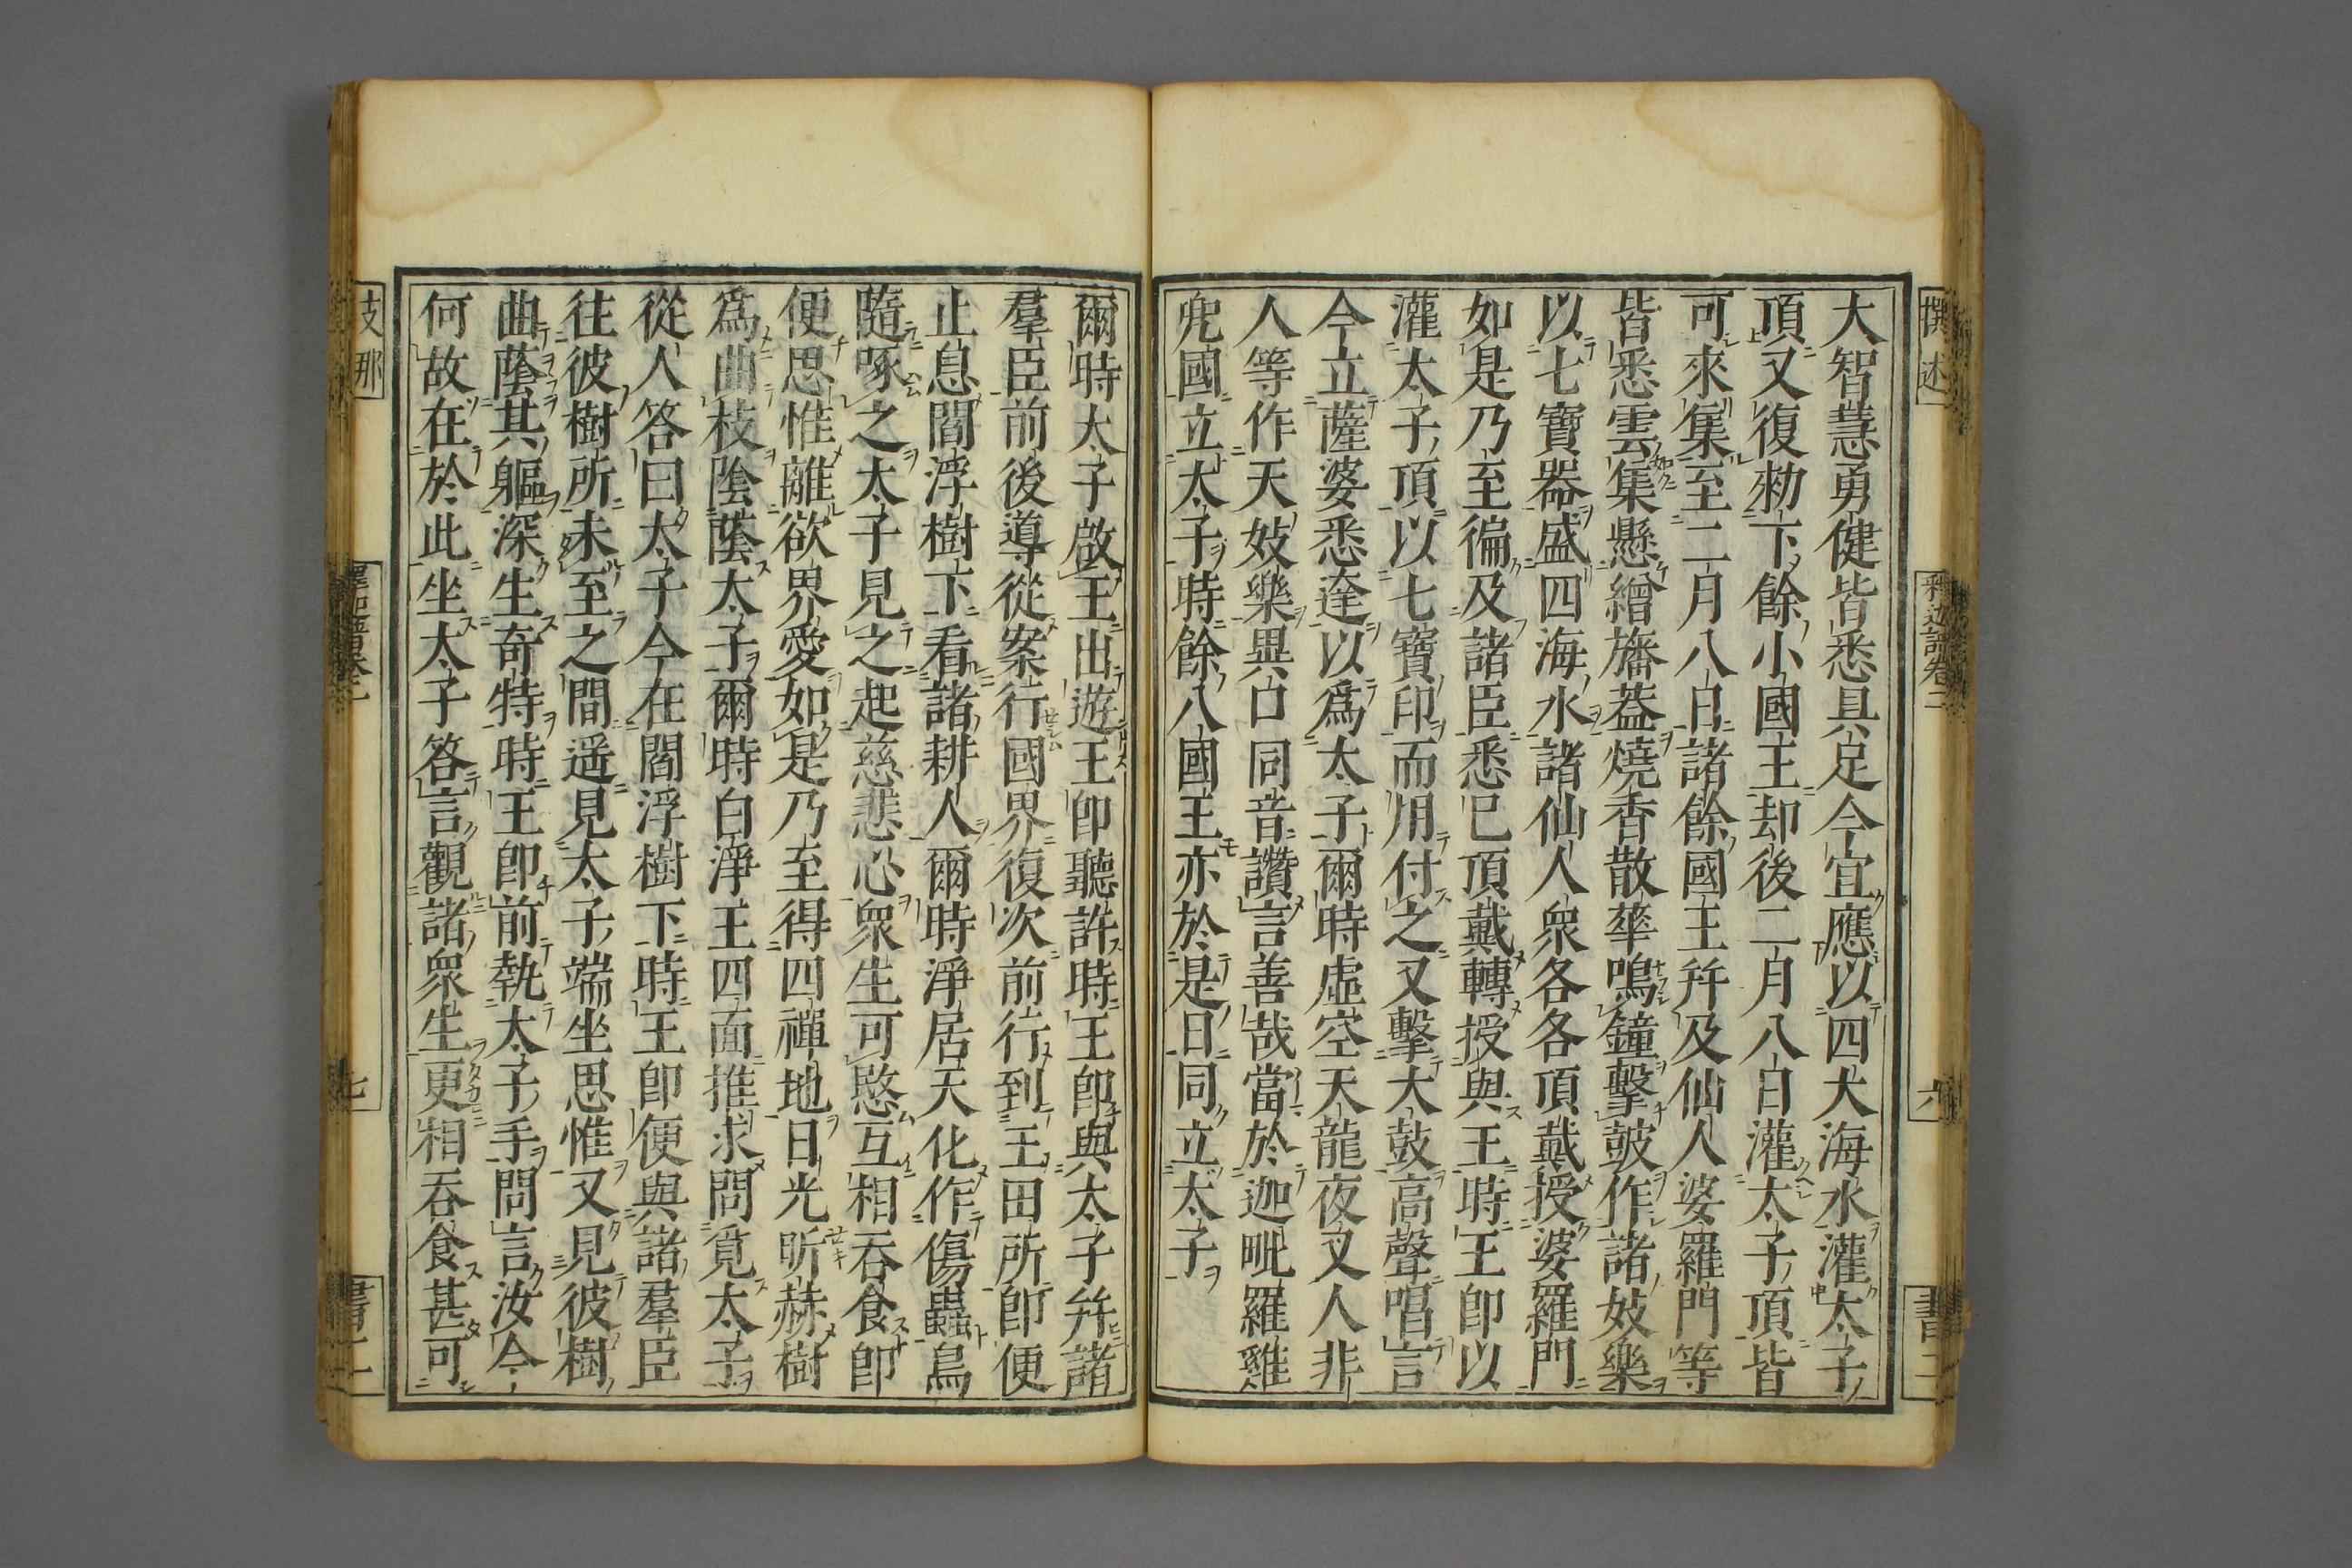 撰述
釋迦譜卷二
六
書二
大智慧勇健皆悉具足今宜應以四大海水灌太子
頂又復勑下餘小國王却後二月八日灌太子頂皆
可來集至二月八日諸餘國王幷及仙人婆羅門等
皆悉雲集懸繒旛葢燒香散華鳴鐘擊皷作諸妓樂
以七寶器盛四海水諸仙人衆各各頂戴授婆羅門
如是乃至徧及諸臣悉已頂戴轉授與王時王卽以
灌太子頂以七寶印而用付之又擊大鼓高聲唱言
今立薩婆悉達以爲太子爾時虛空天龍夜叉人非
人等作天妓樂異口同音讚言善哉當於迦毗羅雞
兜國立太子時餘八國王亦於是日同立太子
爾時太子啟王出遊王卽聽許時王卽與太子幷諸
羣臣前後導從案行國界復次前行到王田所卽便
止息閻浮樹下看諸耕人爾時淨居天化作傷蟲烏
隨啄之太子見之起慈悲心衆生可愍互相吞食卽
便思惟離欲界愛如是乃至得四禪地日光昕赫樹
爲曲枝陰蔭太子爾時白淨王四面推求問覓太子
從人答曰太子今在閻浮樹下時王卽便與諸羣臣
往彼樹所未至之間遥見太子端坐思惟又見彼樹
曲蔭其軀深生奇特時王卽前執太子手問言汝今
何故在於此坐太子答言觀諸衆生更相吞食甚可
支那
釋迦譜卷二
七
書二